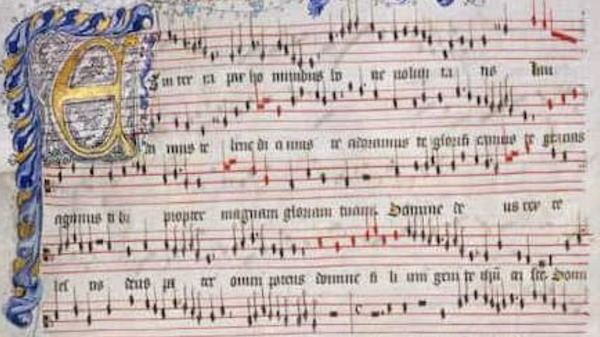 Et in ter ra pax ho minibus bo ne volun ta tis lau
da mus te bene di ci mus te adoramus te glorifi camus te gracias
agimus ti bi propter magnam gloriam tuam. Domine de us rex ce
les tis deus pa ter omni potens domine fi li uni geni te